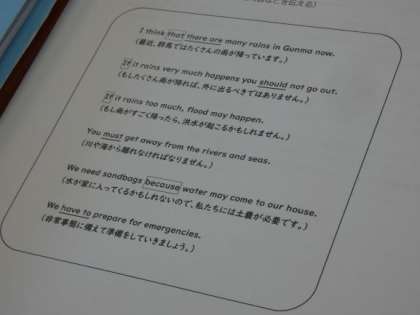 I think that there are many rains in Gunma now.
（最近、群馬ではたくさんの雨が降っています。）
If it rains very much happens you should not go out.
（もしたくさん雨が降れば、外に出るべきではありません。）
If it rains too much, flood may happen.
（もし雨がすごく降ったら、洪水が起こるかもしれません。）
You must get away from the rivers and seas.
（川や海から離れなければなりません。）
We need sandbags because water may come to our house.
（水が家に入ってくるかもしれないので、私たちには土嚢が必要です。）
We have to prepare for emergencies.
（非常事態に備えて準備をしていきましょう。）